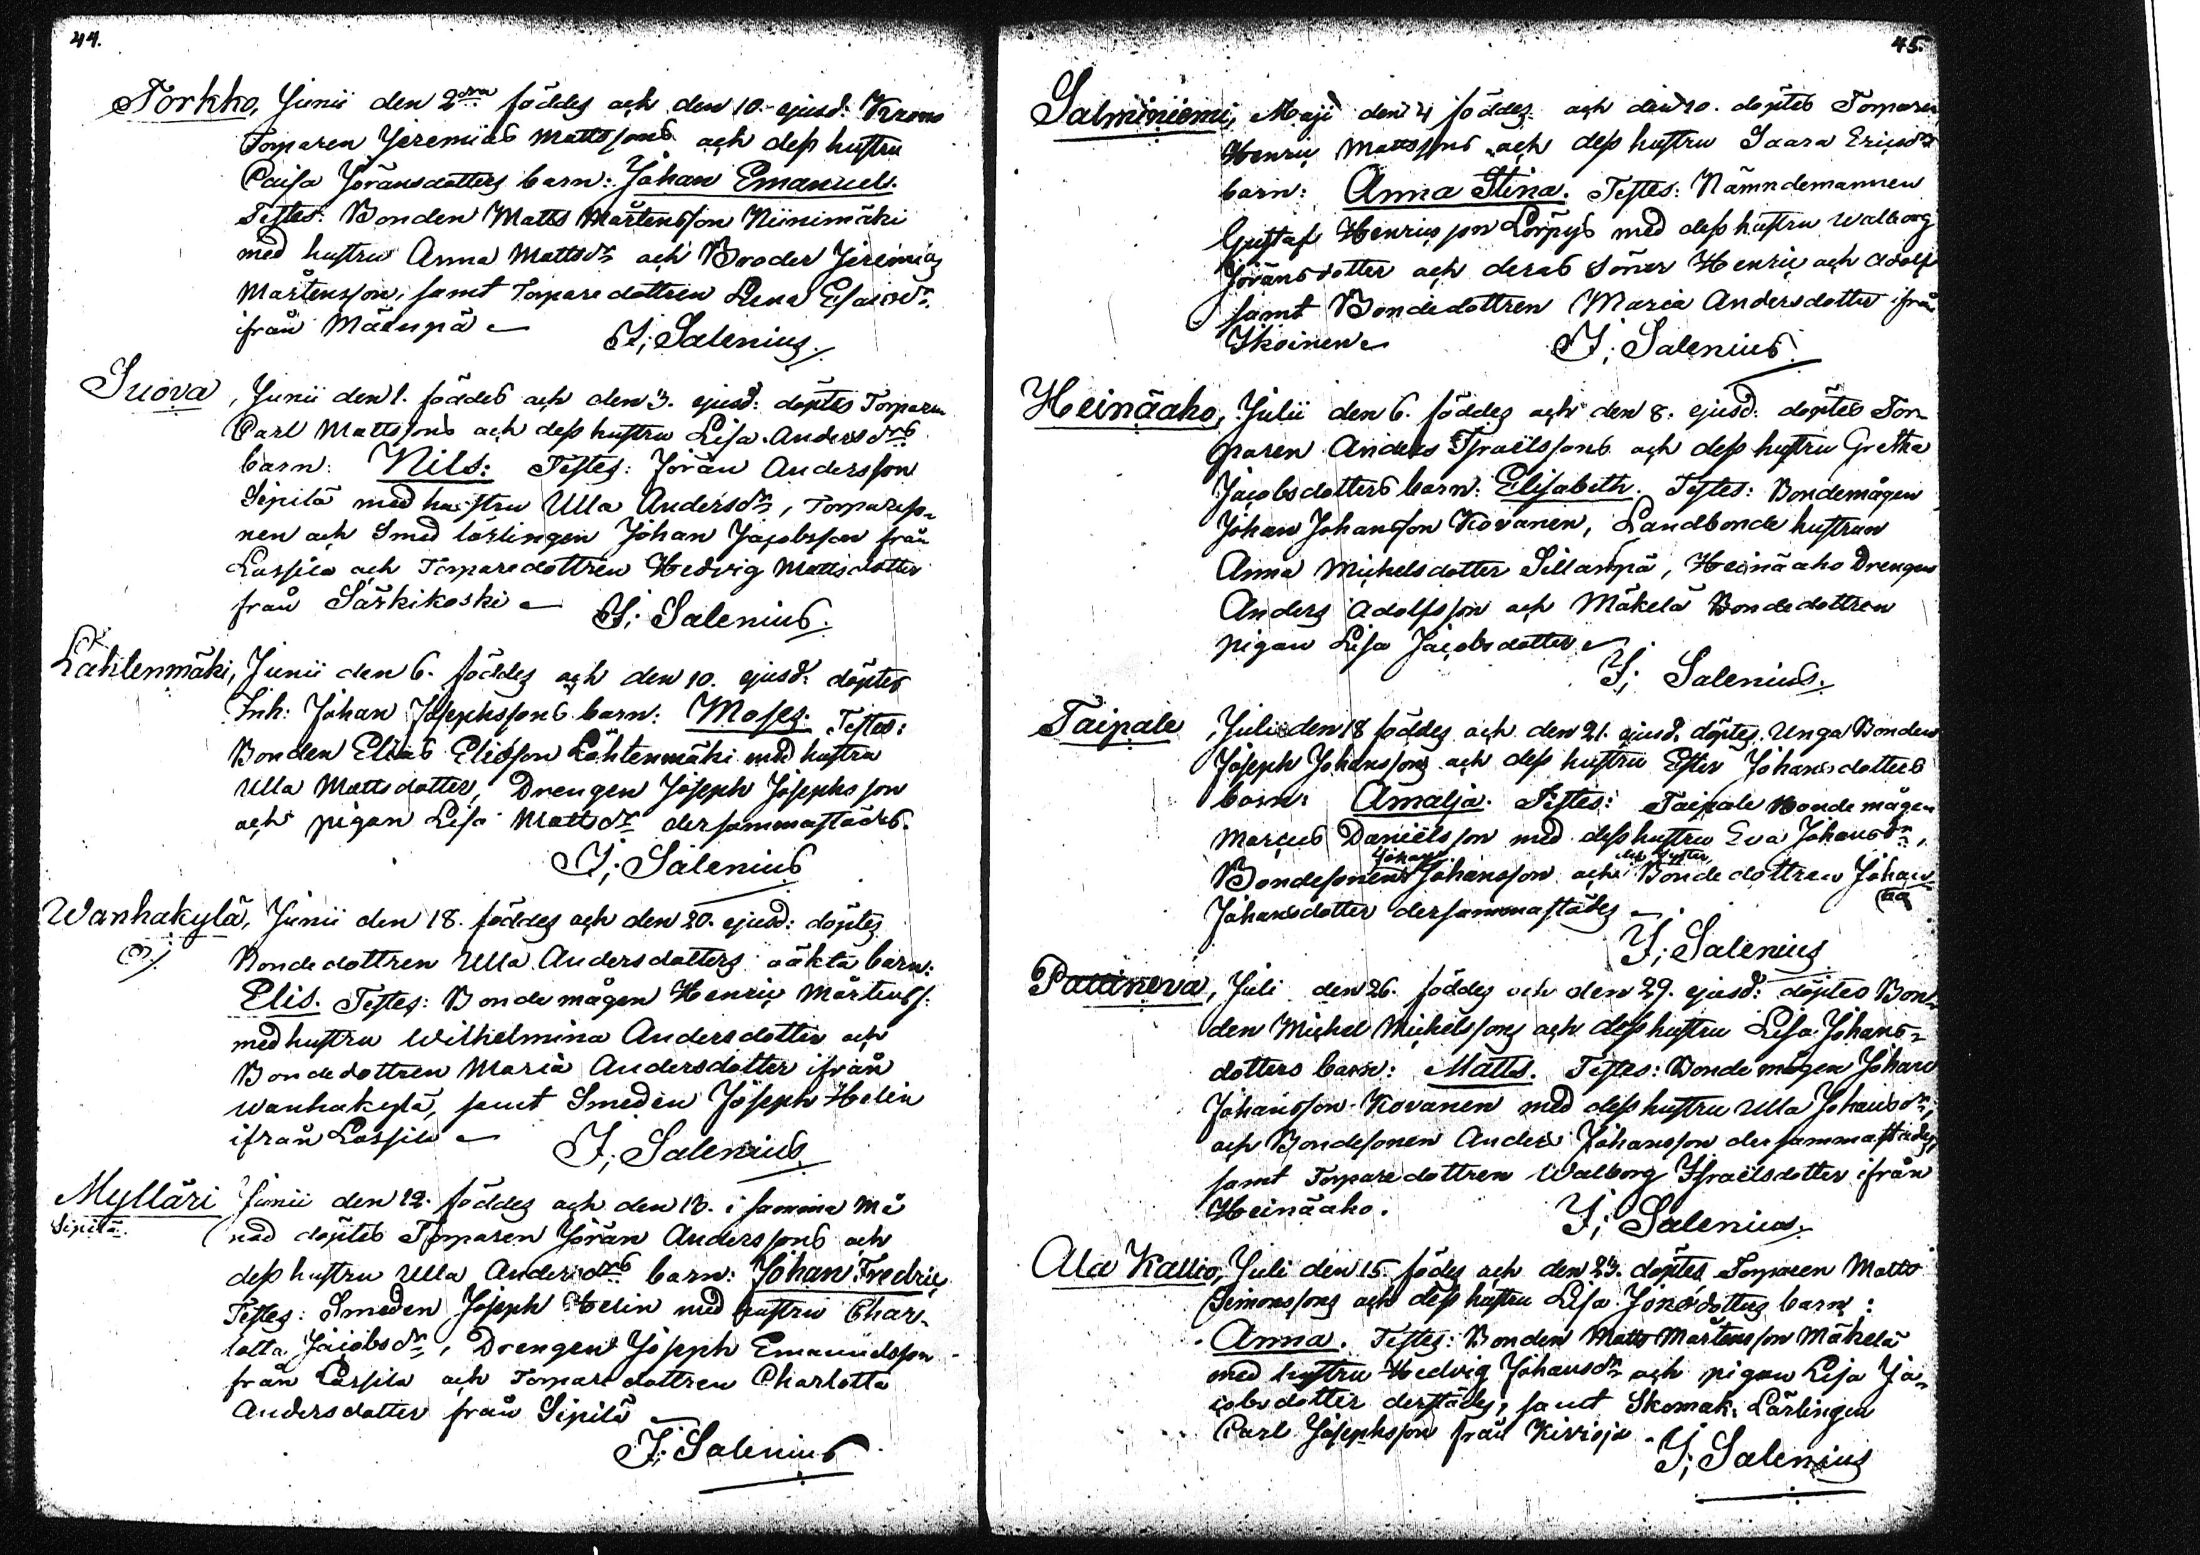 44.
Torkko, Junii den 2dra föddes och den 10. ejusd: Krono
Torparen Jeremias Mattssons och dess hustru
Caisa Jöransdotters barn: Johan Emanuel.
Testes: Bonden Matts Mårtensson Niinimäki
med hustru Anna Mattsdr och Broder Jeremias
Mårtensson, samt Torparedottren Lena Esaiædr
ifrån Mäenpä
J; Salenius
Suova, Junii den 1. föddes och den 3. ejusd: döptes Torparen
Carl Mattssons och dess hustru Lisa Andersdrs
barn: Nils: Testes: Jöran Andersson
Sipilä med hustru Ulla Andersdr, Torpareso-
nen och Smed lärlingen Johan Jacobsson från
Lassila och Torparedottren Hedvig Mattsdotter
från Särkikoski
J; Salenius.
Lahtenmäki, Junii den 6. föddes och den 10. ejusd: döptes
Inh: Johan Josephssons barn: Moses. Testes:
Bonden Elias Eliasson Lähtenmäki med hustru
Ulla Mattsdotter, Drengen Joseph Josephsson
och pigan Lisa Mattsdr dersammastädes.
J; Salenius
Wanhakylä, Junii den 18. föddes och den 20. ejusd: döptes
Bondedottren Ulla Andersdotters oäkta barn:
Elis. Testes: Bondemågen Henric Mårtenss:
med hustru Wilhelmina Andersdotter och
Bondedottren Maria Andersdotter ifrån
Wanhakylä, samt Smeden Joseph Helin
ifrån Lassila
J; Salenius
Mylläri Junii den 12. föddes och den 13. i samma Må
Sipilä.
nad döptes Torparen Jöran Anderssons och
dess hustru Ulla Andersdrs barn: Johan Fredric
Testes: Smeden Joseph Helin med hustru Char-
lotta Jacobsdr, Drengen Joseph Emanuelsson
från Lassila och Torparedottren Charlotta
Andersdotter från Sipilä
J; Salenius
45.
Salminiemi, Maji den 4 föddes och den 10. döptes Torparen
Henric Mattssons och dess hustru Saara Ericsdrs
barn: Anna Stina. Testes: Nämndemannen
Gustaf Henricsson Lörpys med dess hustru Walborg
Jöransdotter och deras Söner Henric och Adolf
samt Bondedottren Maria Andersdotter ifrån
Ikoinen
J; Salenius
Heinäaho, Julii den 6. föddes och den 8. ejusd: döptes Tor-
paren Anders Israëlssons och dess hustru Gretha
Jacobsdotters barn: Elisabeth. Testes: Bondemågen
Johan Johansson Kovanen, Landbonde hustrun
Anna Michelsdotter Sillanpä, Heinäaho Drengen
Anders Adolfsson och Mäkelä Bondedottren
pigan Lisa Jacobsdotter
J; Salenius.
Taipale, Julii den 18 föddes och den 21. ejusd. döptes Unga Bonden
Joseph Johanssons och dess hustru Ester Johansdotters
barn: Amalja. Testes: Taipale Bondemågen
Marcus Daniëlsson med dess hustru Eva Johansdr,
Johan dess Syster
Bondesonen Johansson och Bondedottren Johan
na
Johansdotter dersammastädes
J; Salenius
Pattineva, Juli den 26. föddes och den 29. ejusd: döptes Bon-
den Michel Michelssons och dess hustru Lisa Johans-
dotters barn: Matts. Testes: Bondemågen Johan
Johansson Kovanen med dess hustru Ulla Johansdr,
och Bondesonen Anders Johansson dersammastädes,
samt Torparedottren Walborg Israëlsdotter ifrån
Heinäaho.
J; Salenius.
Ala Kallio, Juli den 15 födes och den 23. döptes Torparen Matts
Simonssons och dess hustru Lisa Jonædotters barn:
Anna. Testes: Bonden Matts Mårtensson Mäkelä
med hustru Hedvig Johansdr och pigan Lisa Ja-
cobsdotter derstädes, samt Skomak. Lärlingen
Carl Josephsson från Kivioja
J; Salenius